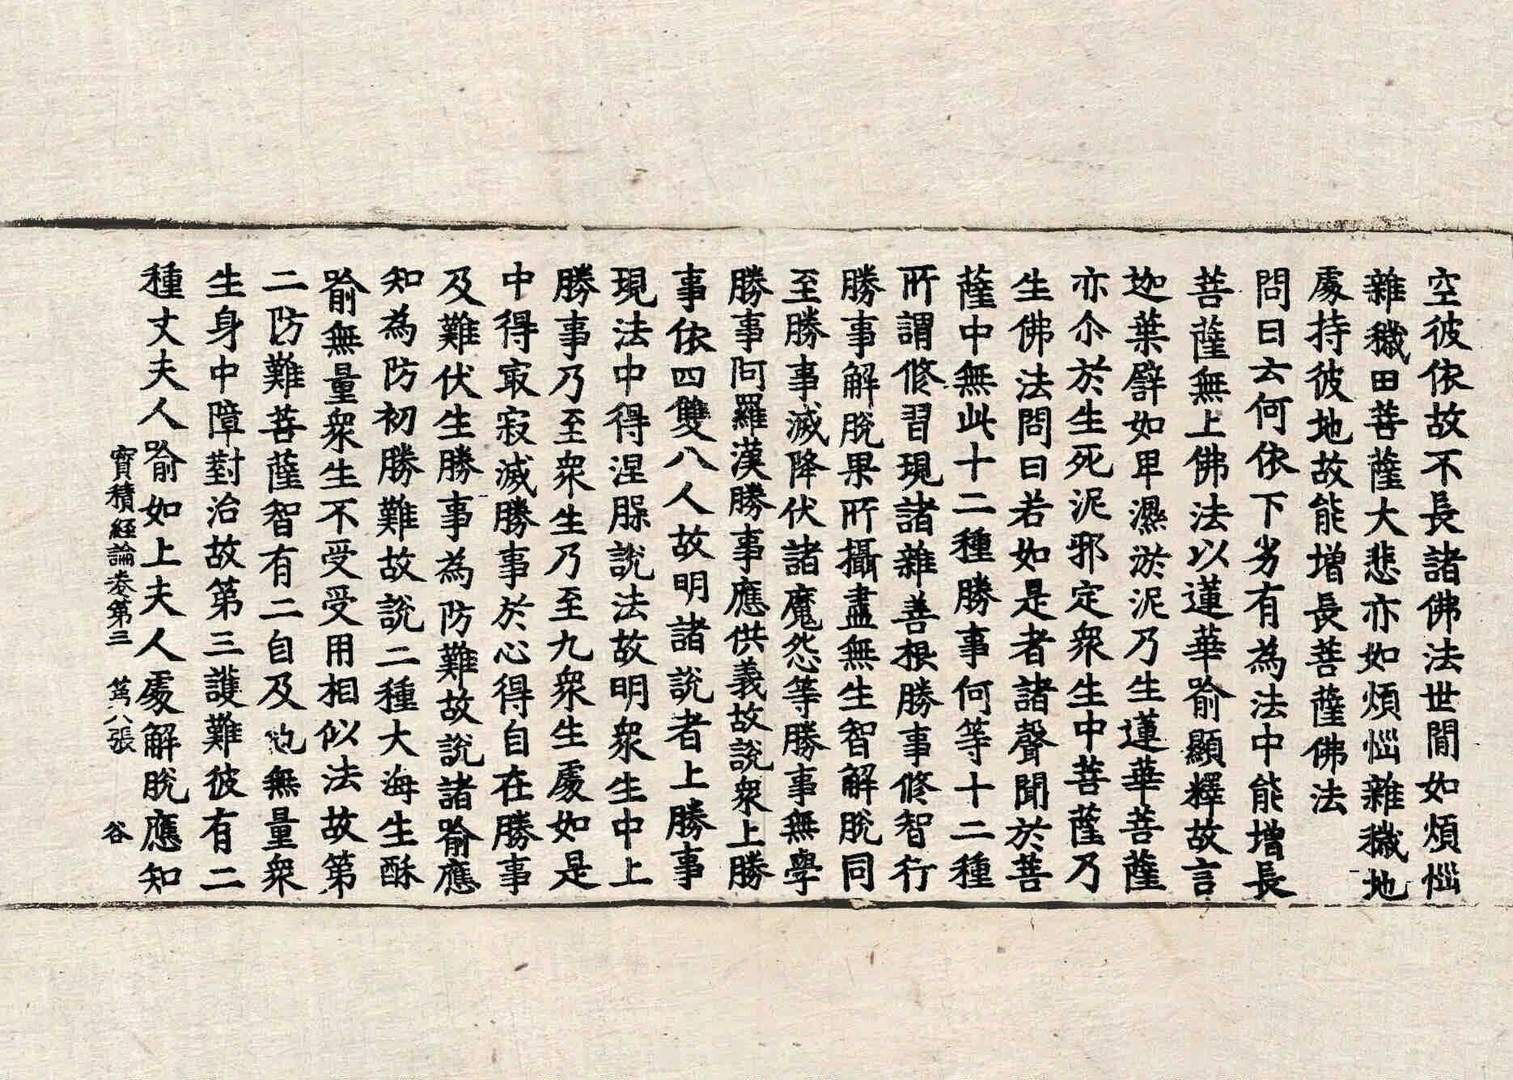 空彼依故不長諸佛法世間如煩惱
雜穢田菩薩大悲亦如煩惱雜穢地
處持彼地故能增長菩薩佛法
問曰云何依下劣有為法中能增長
菩薩無上佛法以蓮華喻顯釋故言
迦葉譬如卑濕淤泥乃生蓮華菩薩
亦尒於生死泥邪定衆生中菩薩乃
生佛法問曰若如是者諸聲聞於菩
薩中無此十二種勝事何等十二種
所謂修習現諸雜善根勝事修智行
勝事解脫果所攝盡無生智解脫同
至勝事滅降伏諸魔怨等勝事無學
勝事阿羅漢勝事應供義故說衆上勝
事依四雙八人故明諸說者上勝事
現法中得涅槃說法故明衆生中上
勝事乃至衆生乃至九衆生處如是
中得㝡寂滅勝事於心得自在勝事
及難伏生勝事為防難故說諸喻應
知為防初勝難故說二種大海生酥
喻無量衆生不受受用相似法故第
二防難菩薩智有二自及他無量衆
生身中障對治故第三護難彼有二
種丈夫人喻如上夫人處解脫應知
寶積經論卷第三　第八張　谷